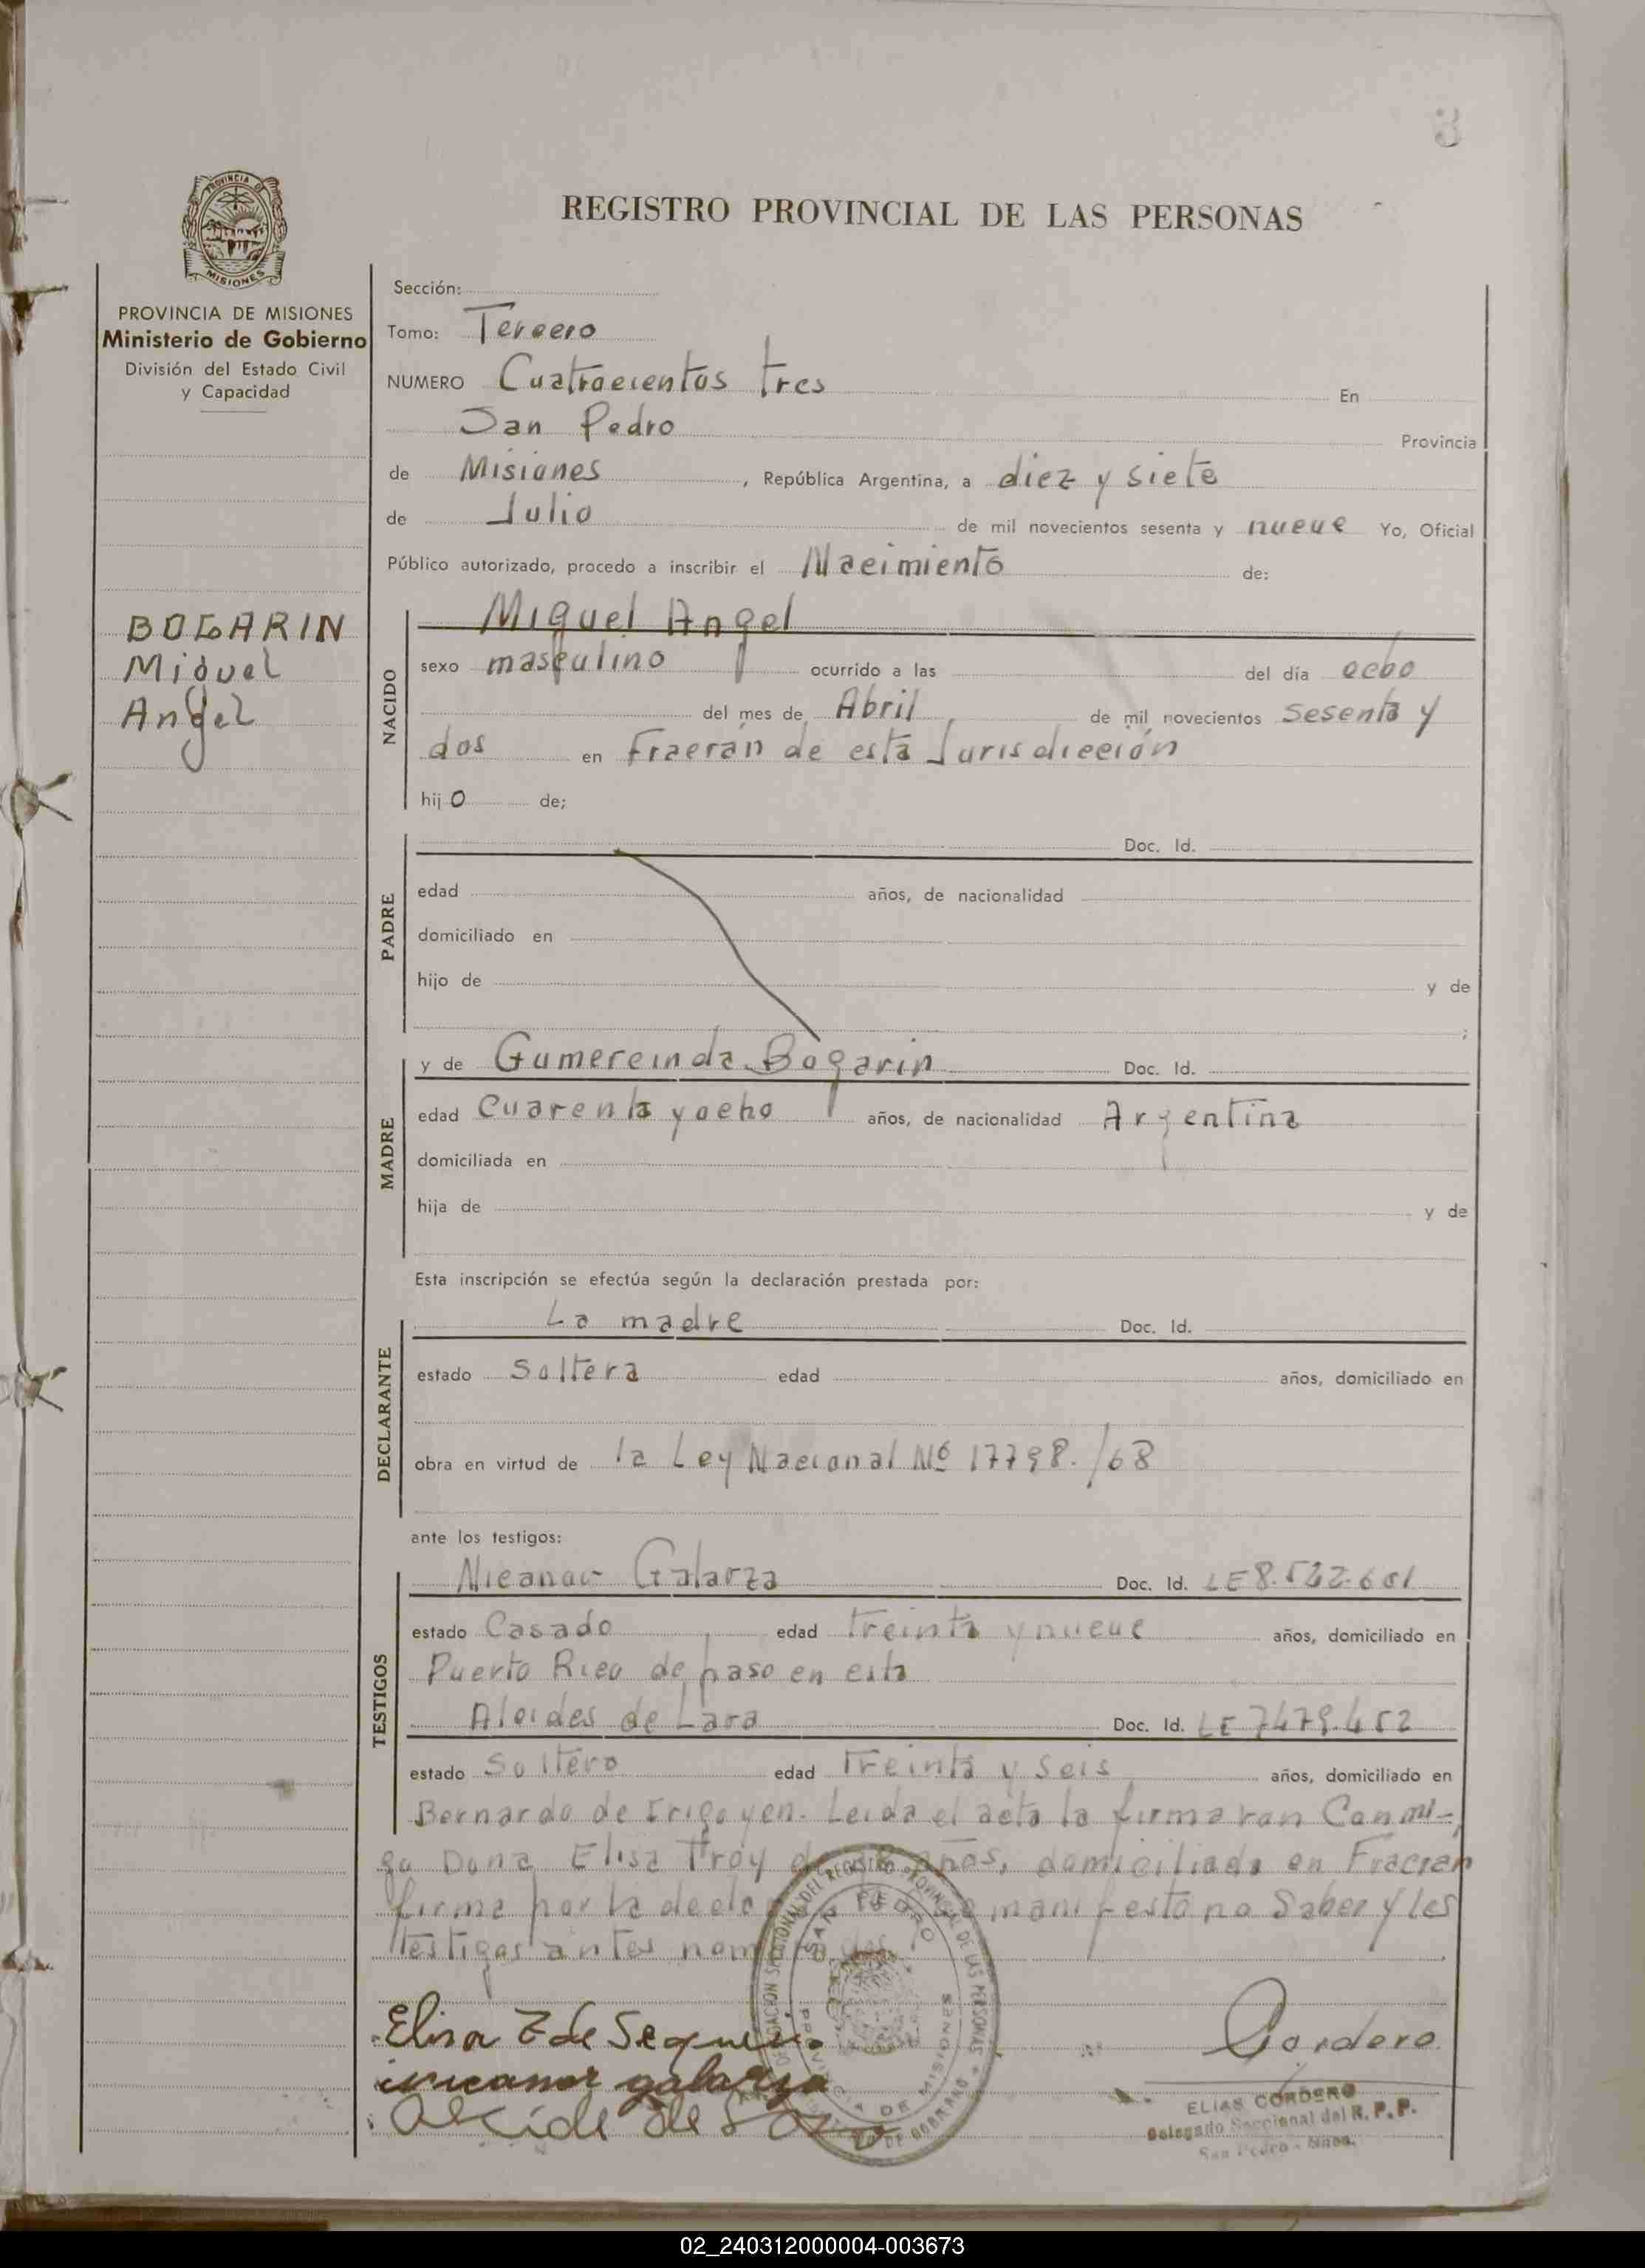 3
PROVINCIA DE
MISIONES
REGISTRO PROVINCIAL DE LAS PERSONAS
PROVINCIA DE MISIONES
Ministerio de Gobierno
División del Estado Civil
y Capacidad
BOGARIN
Miguel
Angel
Sección:
Tomo: Tercero
NUMERO Cuatrocientos tres En
San Pedro Provincia
de Misiones, República Argentina, a diez y siete
de Julio de mil novecientos sesenta y nueve Yo, Oficial
Público autorizado, procedo a inscribir el Nacimiento de:
NACIDO
Miguel Angel
sexo masculino ocurrido a las del día ocho
del mes de Abril de mil novecientos sesenta y
dos en Fracran de esta Jurisdicción
hijo de;
PADRE
Doc. Id.
edad años, de nacionalidad
domiciliado en
hijo de y de
;
MADRE
y de Gumercinda Bogarin Doc. Id.
edad Cuarenta y ocho años, de nacionalidad Argentina
domiciliada en
hija de y de
Esta inscripción se efectúa según la declaración prestada por:
DECLARANTE
La madre Doc. Id.
estado Soltera edad años, domiciliado en
obra en virtud de la Ley Nacional Nº 17798./68
ante los testigos:
TESTIGOS
Nicanor Galarza Doc. Id. LE 8.522.601
estado Casado edad treinta y nueve años, domiciliado en
Puerto Rico de paso en esta
Alcides de Lara Doc. Id. LE 7479.452
estado Soltero edad Treinta y seis años, domiciliado en
Bernardo de Irigoyen. Leida el acta la firmaran Conmi-
go Dona Elisa años, domiciliada en Fracran
firma por la manifesto no Saber y los
testigos antes
DELEGACION SECCIONAL DEL REGISTRO PROVINCIAL DE LAS PERSONAS
SAN PEDRO
PROVINCIA DE MISIONES
Elisa Z de
nicanor galarza
Alcide de Lara
Cordero
ELIAS CORDERO
Delegado Seccional del R. P. P.
San Pedro - Mnes.
02_240312000004-003673